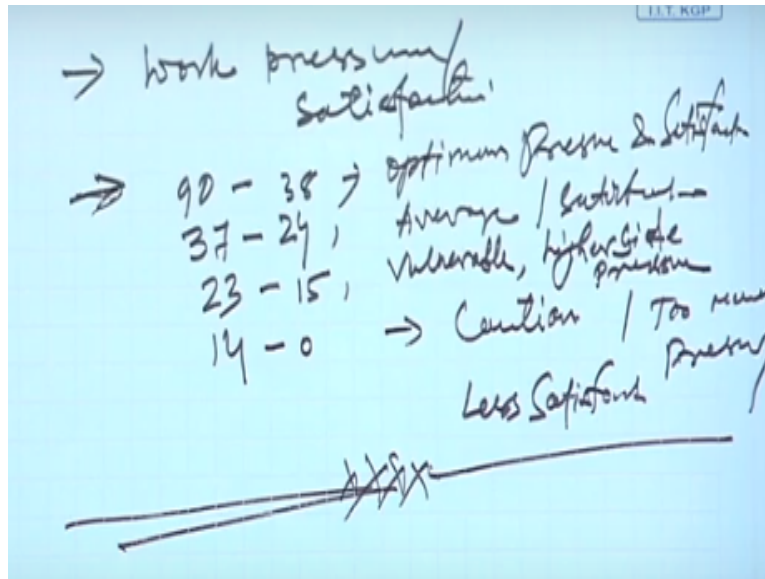 I.I.T. KGP
→ Work pressure/
Satisfaction
→ 90 - 38 → optimum Pressure & Satisfaction
37 - 24, Average / Satisfaction
23 - 15, Vulnerable, higher side
pressure
14 - 0 → Caution / Too much
Pressure/
Less Satisfaction